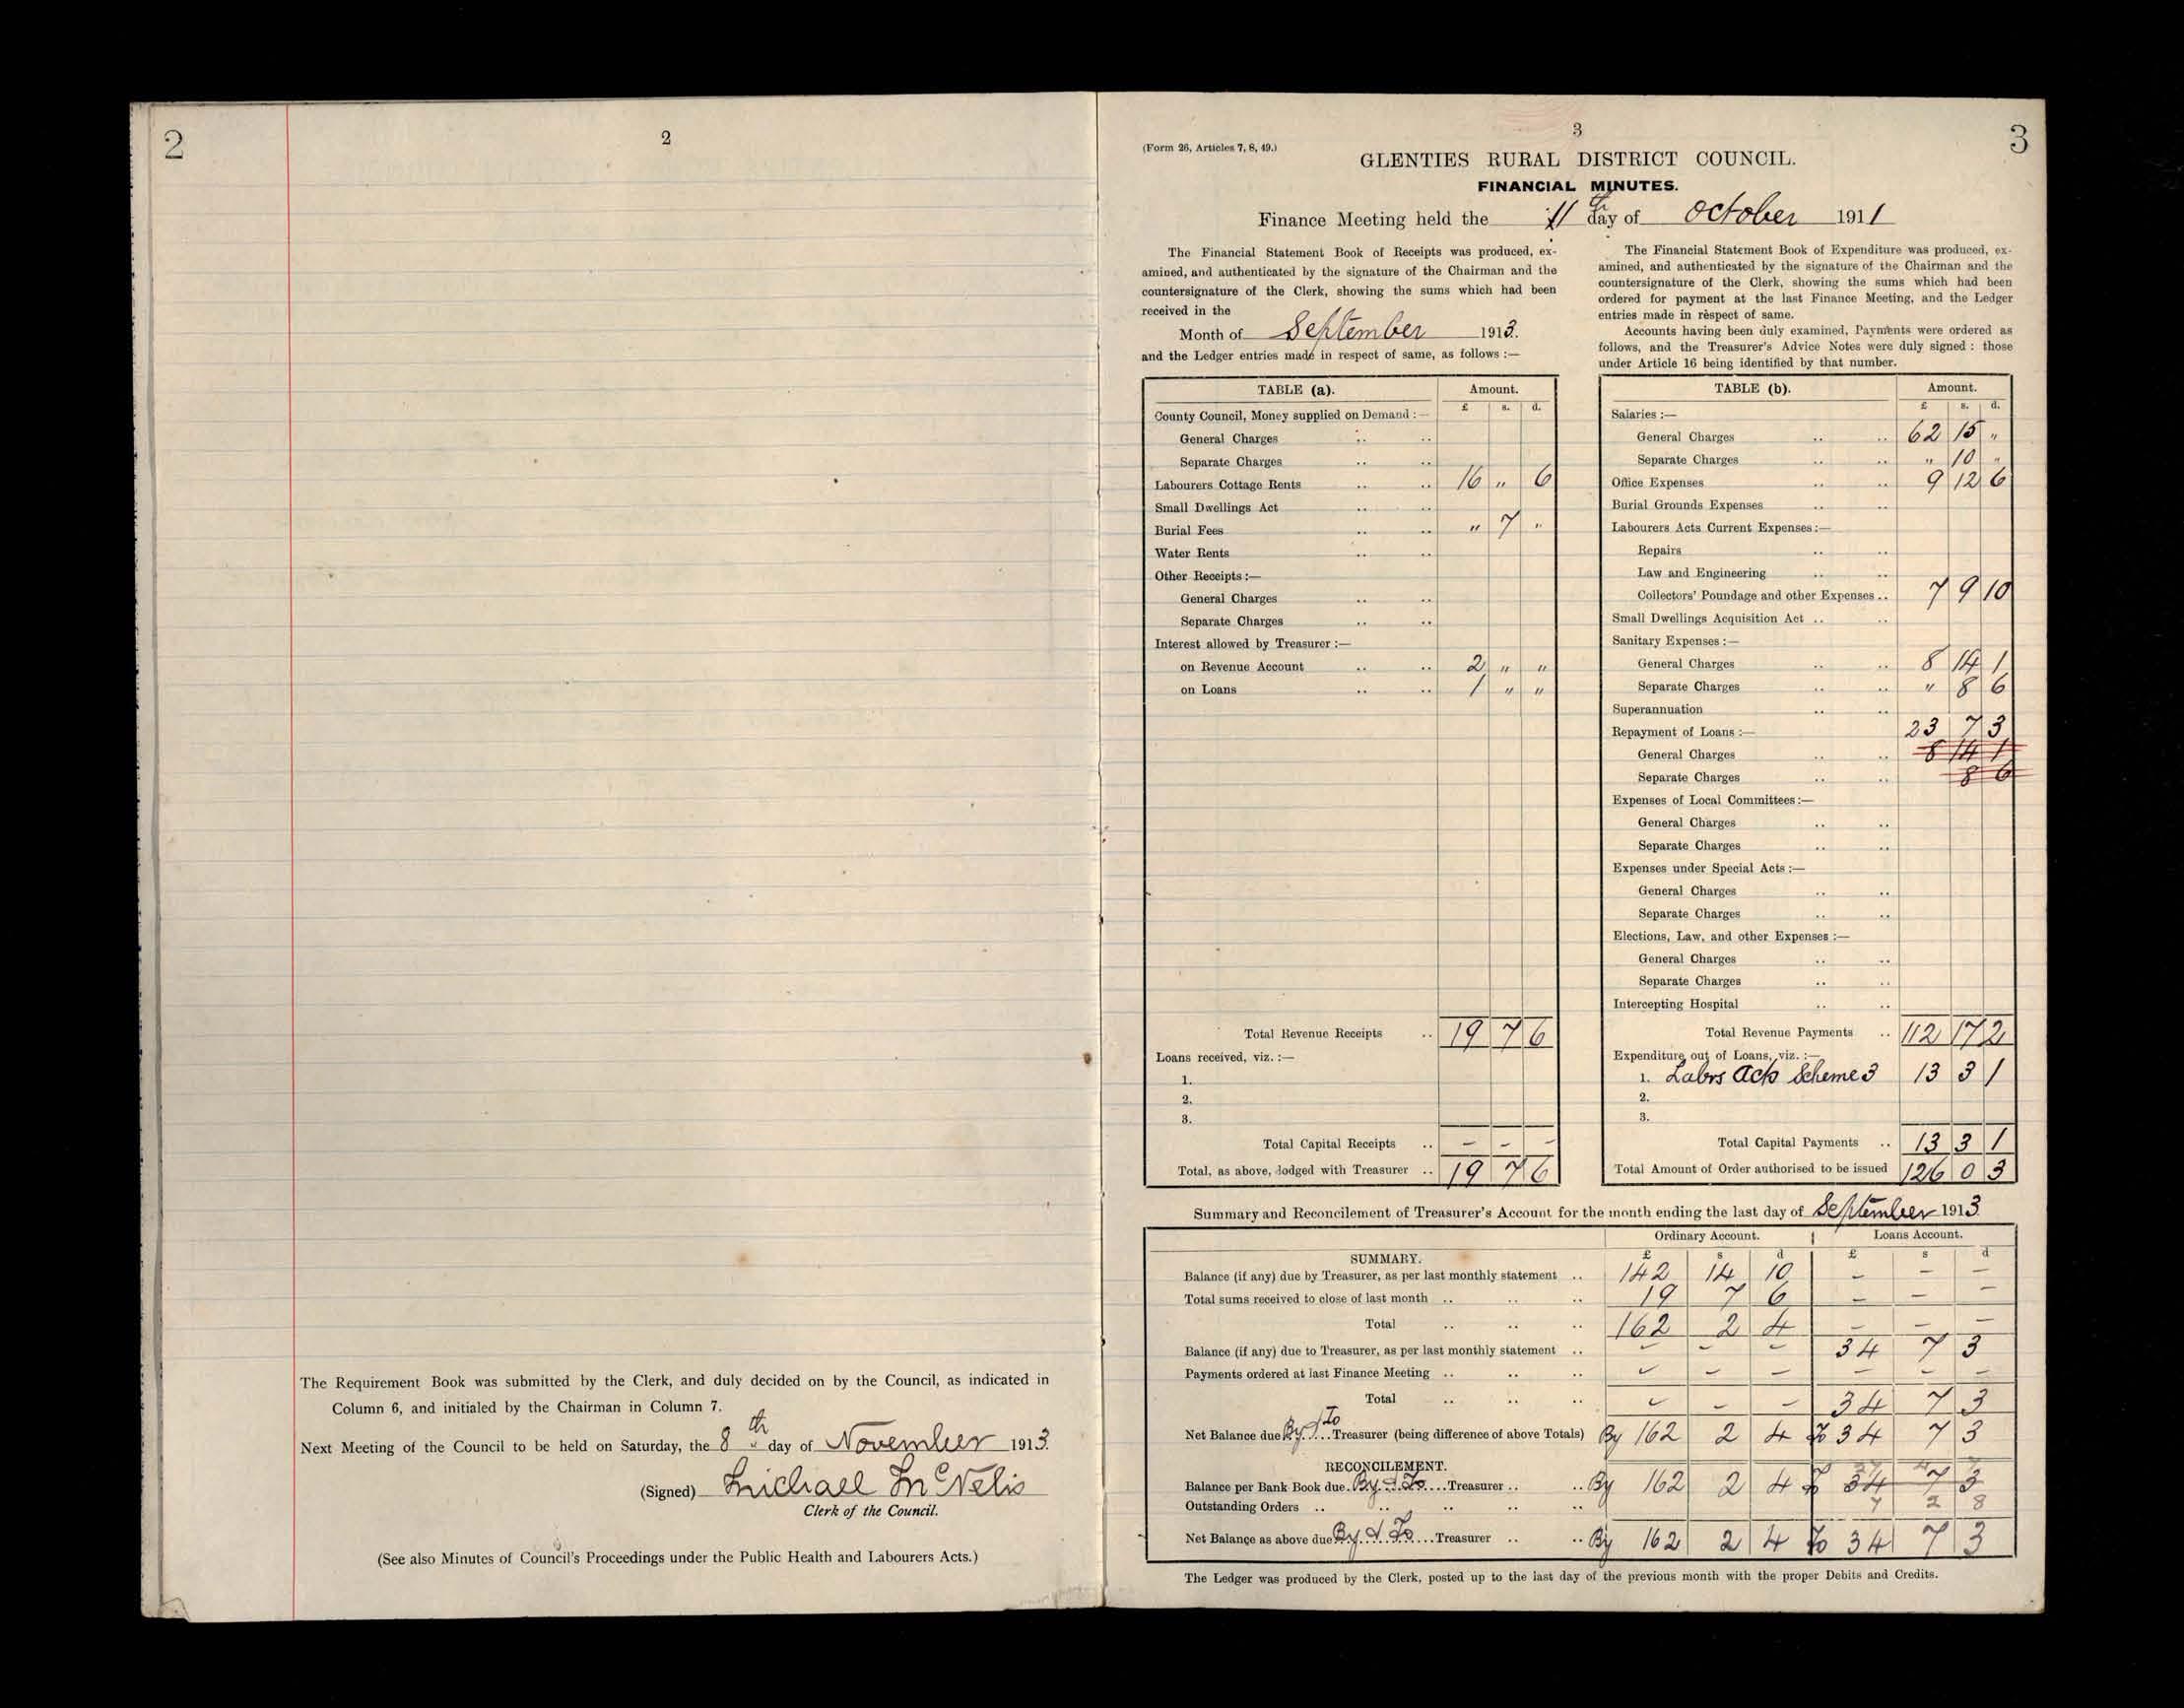 2
2
The Requirement Book was submitted by the Clerk, and duly decided on by the Council, as indicated in
Column 6, and initialed by the Chairman in Column 7.
Next Meeting of the Council to be held on Saturday, the 8th " day of November 1913.
(Signed) Michael McNelis
Clerk of the Council.
(See also Minutes of Council's Proceedings under the Public Health and Labourers Acts.)
3
3
(Form 26, Articles 7, 8, 49.)
GLENTIES RURAL DISTRICT COUNCIL.
FINANCIAL MINUTES.
Finance Meeting held the 11th day of October 1911
The Financial Statement Book of Receipts was produced, ex-
amined, and authenticated by the signature of the Chairman and the
countersignature of the Clerk, showing the sums which had been
received in the
Month of September 1913.
and the Ledger entries made in respect of same, as follows :—
TABLE (a). Amount.
£ s. d.
County Council, Money supplied on Demand :—
General Charges .. ..
Separate Charges .. ..
Labourers Cottage Rents .. .. 16 " 6
Small Dwellings Act .. ..
Burial Fees .. .. " 7 "
Water Rents .. ..
Other Receipts :—
General Charges .. ..
Separate Charges .. ..
Interest allowed by Treasurer :—
on Revenue Account .. .. 2 " "
on Loans .. .. 1 " "
Total Revenue Receipts .. 19 7 6
Loans received, viz. :—
1.
2.
3.
Total Capital Receipts .. – – –
Total, as above, lodged with Treasurer .. 19 7 6
The Financial Statement Book of Expenditure was produced, ex-
amined, and authenticated by the signature of the Chairman and the
countersignature of the Clerk, showing the sums which had been
ordered for payment at the last Finance Meeting, and the Ledger
entries made in respect of same.
Accounts having been duly examined, Payments were ordered as
follows, and the Treasurer's Advice Notes were duly signed : those
under Article 16 being identified by that number.
TABLE (b). Amount.
£ s. d.
Salaries :—
General Charges .. .. 62 15 "
Separate Charges .. .. " 10 "
Office Expenses .. .. 9 12 6
Burial Grounds Expenses .. ..
Labourers Acts Current Expenses :—
Repairs .. ..
Law and Engineering .. ..
Collectors' Poundage and other Expenses .. 7 9 10
Small Dwellings Acquisition Act .. ..
Sanitary Expenses :—
General Charges .. .. 8 14 1
Separate Charges .. .. " 8 6
Superannuation .. ..
Repayment of Loans :— 23 7 3
General Charges .. .. 8 14 1
Separate Charges .. .. 8 6
Expenses of Local Committees :—
General Charges .. ..
Separate Charges .. ..
Expenses under Special Acts :—
General Charges .. ..
Separate Charges .. ..
Elections, Law, and other Expenses :—
General Charges .. ..
Separate Charges .. ..
Intercepting Hospital .. ..
Total Revenue Payments .. 112 17 2
Expenditure out of Loans, viz. :—
1. Labrs Acts Scheme 3 13 3 1
2.
3.
Total Capital Payments .. 13 3 1
Total Amount of Order authorised to be issued 126 0 3
Summary and Reconcilement of Treasurer's Account for the month ending the last day of September 1913
Ordinary Account. Loans Account.
SUMMARY. £ s d £ s d
Balance (if any) due by Treasurer, as per last monthly statement .. 142 14 10 – – –
Total sums received to close of last month .. .. .. 19 7 6 – – –
Total .. .. .. 162 2 4 – – –
Balance (if any) due to Treasurer, as per last monthly statement .. – – – 34 7 3
Payments ordered at last Finance Meeting .. .. .. – – – – – –
Total .. .. .. – – – 34 7 3
Net Balance due By & To Treasurer (being difference of above Totals) By 162 2 4 To 34 7 3
RECONCILEMENT.
Balance per Bank Book due By & To Treasurer .. .. By 162 2 4 To 34 7 3
Outstanding Orders .. .. .. .. .. 7 2 8
Net Balance as above due By & To Treasurer .. .. By 162 2 4 To 34 7 3
The Ledger was produced by the Clerk, posted up to the last day of the previous month with the proper Debits and Credits.